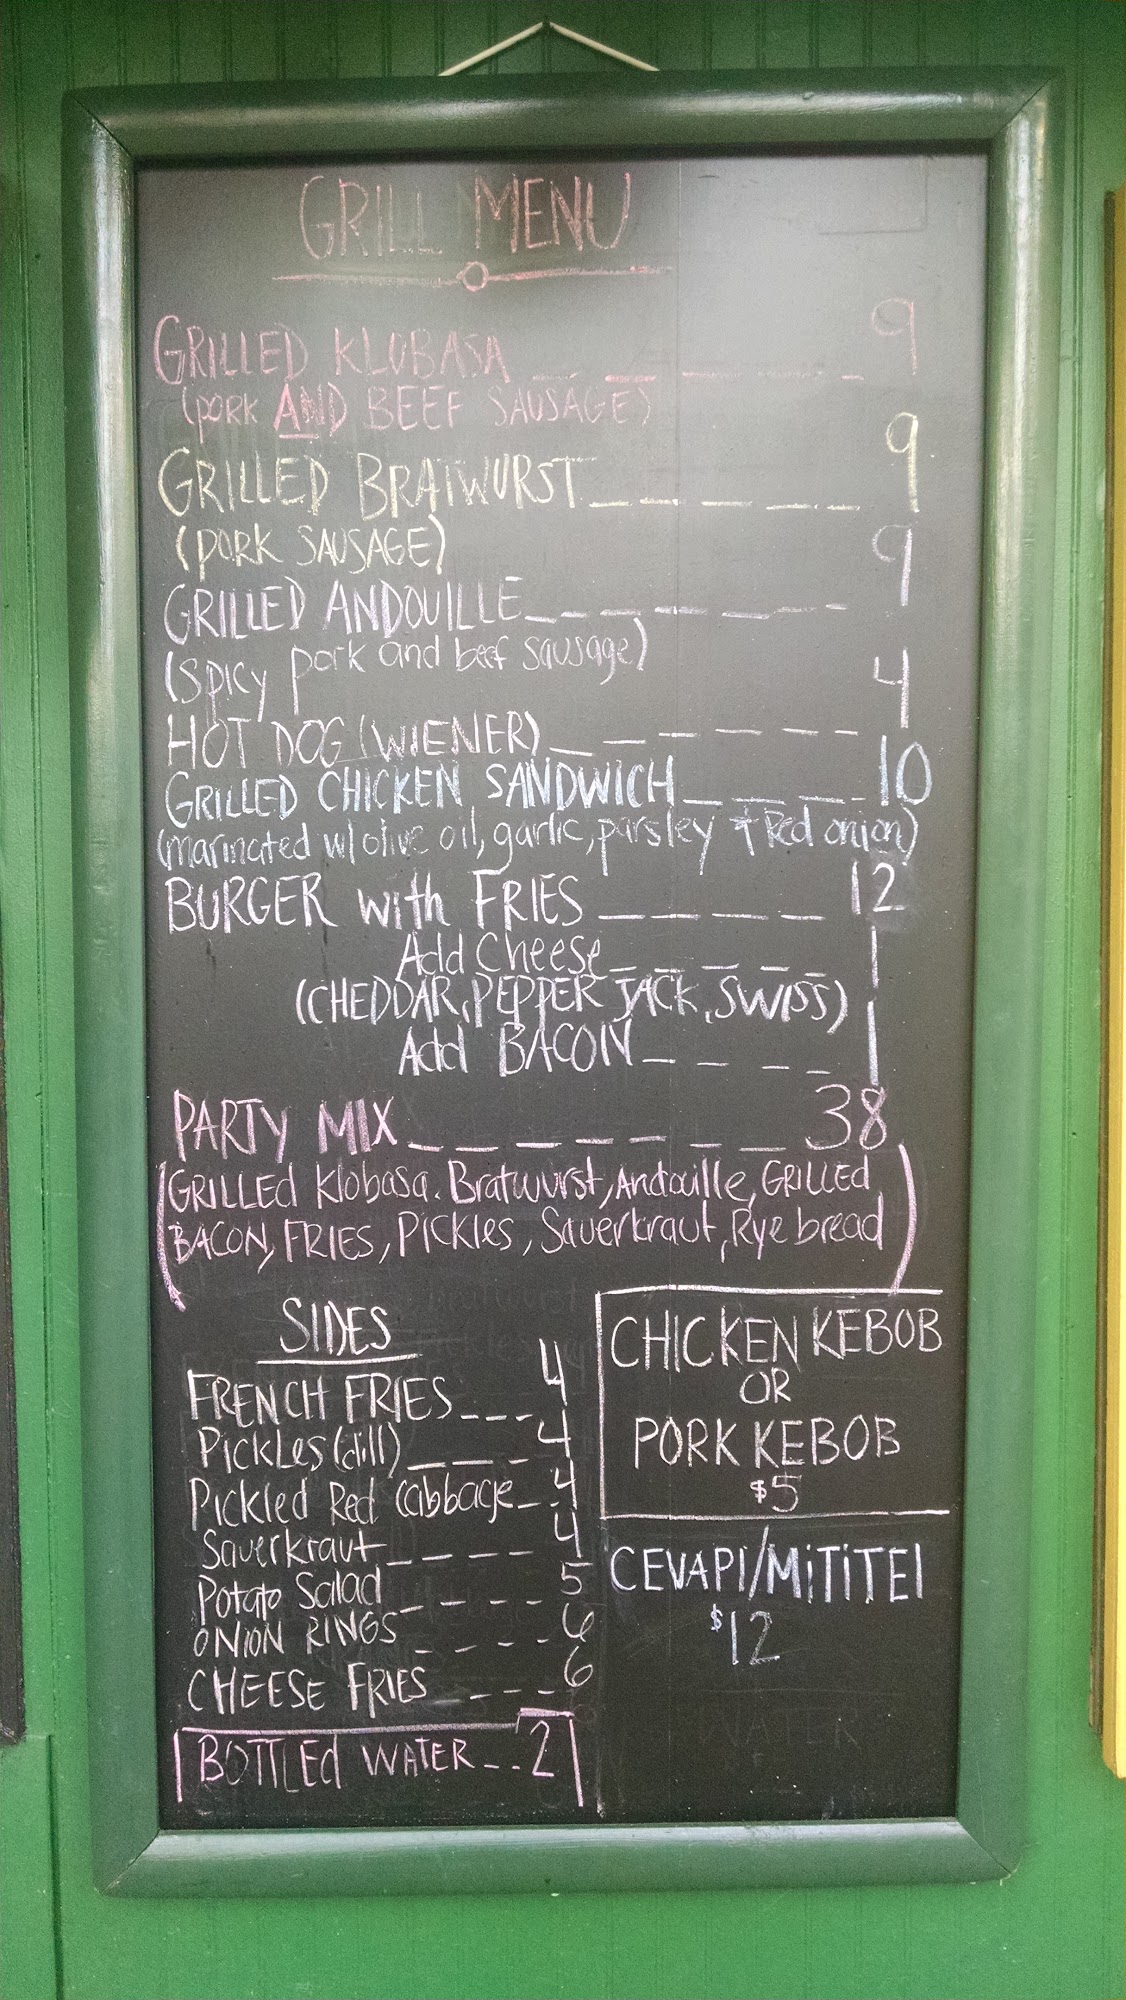 GRILL MENU
GRILLED KLOBASA _ _ _ _ _ 9
(pork AND BEEF SAUSAGE)
GRILLED BRATWURST _ _ _ _ _ 9
(PORK SAUSAGE)
GRILLED ANDOUILLE _ _ _ _ _ _ 9
(Spicy pork and beef sausage)
HOT DOG (WIENER) _ _ _ _ _ _ 4
GRILLED CHICKEN SANDWICH _ _ _ _ 10
(marinated w/ olive oil, garlic, parsley + Red onion)
BURGER with FRIES _ _ _ _ _ 12
Add Cheese _ _ _ _ _ 1
(CHEDDAR, PEPPER JACK, SWISS)
Add BACON _ _ _ _ 1
PARTY MIX _ _ _ _ _ _ _ _ 38
(GRILLED Klobasa. Bratwurst, Andouille, GRILLED
BACON, FRIES, Pickles, Sauerkraut, Rye bread)
SIDES
FRENCH FRIES _ _ _ 4
Pickles (dill) _ _ _ _ 4
Pickled Red Cabbage _ _ 4
Sauerkraut _ _ _ _ 4
Potato Salad _ _ _ _ 5
ONION RINGS _ _ _ _ 6
CHEESE FRIES _ _ _ 6
BOTTLEd WATER _ _ 2
CHICKEN KEBOB
OR
PORK KEBOB
$5
CEVAPI/MiTiTEI
$12